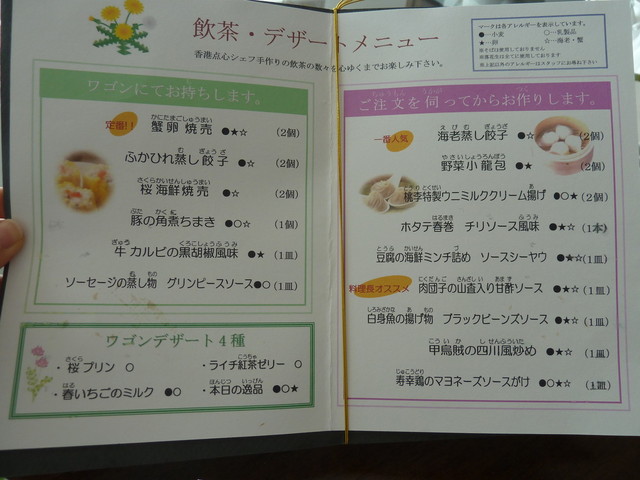 飲茶・デザートメニュー
香港点心シェフ手作りの飲茶の数々を心ゆくまでお楽しみ下さい。
マークは各アレルギーを表示しています。
●…小麦 ○…乳製品
★…卵 ☆…海老・蟹
ワゴンにてお持ちします。
定番!! 蟹卵焼売 ●★☆ (2個)
ふかひれ蒸し餃子 ●☆ (2個)
桜海鮮焼売 ●☆ (2個)
豚の角煮ちまき ●○☆ (1個)
牛カルビの黒胡椒風味 ●★ (1皿)
ソーセージの蒸し物 グリンピースソース●○ (1皿)
ワゴンデザート4種
・桜プリン ○ ・ライチ紅茶ゼリー ○
・春いちごのミルク ●○ ・本日の逸品 ●○★
ご注文を伺ってからお作りします。
一番人気 海老蒸し餃子 ●☆ (2個)
野菜小龍包 ●★ (2個)
桃李特製ウニミルククリーム揚げ ●○★ (2個)
ホタテ春巻 チリソース風味 ●★☆ (1本)
豆腐の海鮮ミンチ詰め ソースシーヤウ ●★☆ (1皿)
料理長オススメ 肉団子の山査入り甘酢ソース ●★☆ (1皿)
白身魚の揚げ物 ブラックビーンズソース ●★☆ (1皿)
甲烏賊の四川風炒め ●★☆ (1皿)
寿幸鶏のマヨネーズソースがけ ●○★☆ (1皿)